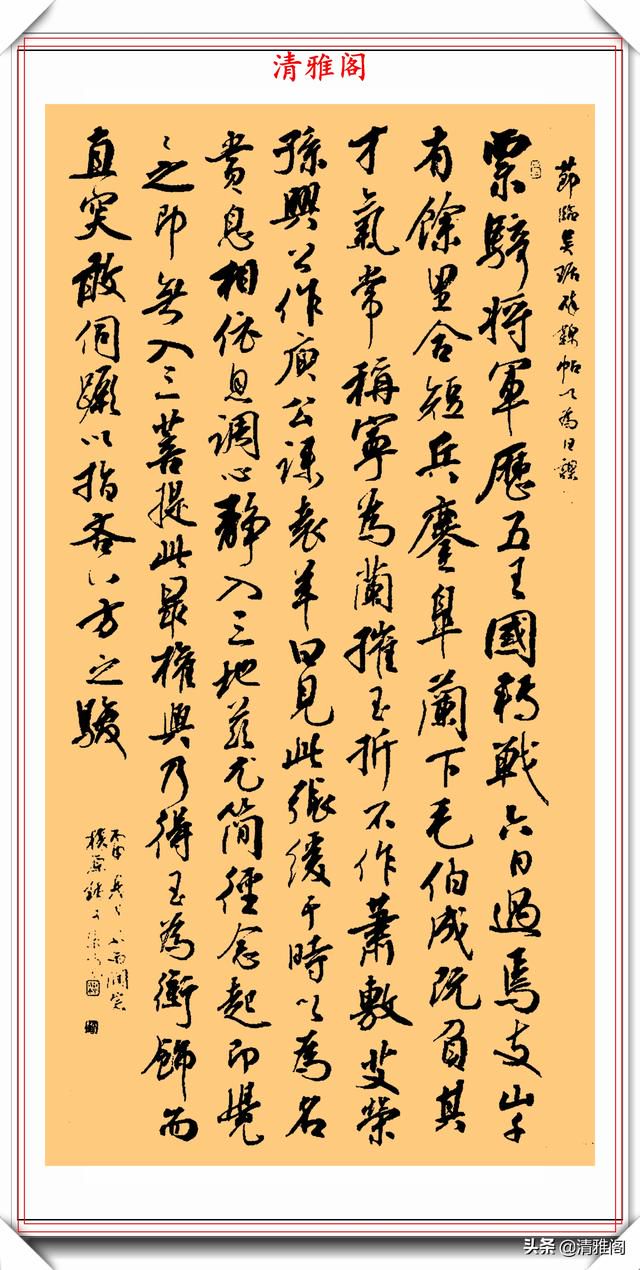 清雅阁
節臨吳琚帖以為日課
票騎將軍歷五王國轉戰六日過焉支山千
有餘里合短兵鏖皋蘭下毛伯成既負其
才氣常稱寧為蘭摧玉折不作蕭敷艾榮
孫興公作庾公誄袁羊曰見此張緩于時以為名
賞息相依息調心靜入三地茲尤簡徑念起即覺
々之即無入三菩提此最權輿乃得玉為衡飾而
直突敢伺蹶以指吝以方之駿
头条 @清雅阁